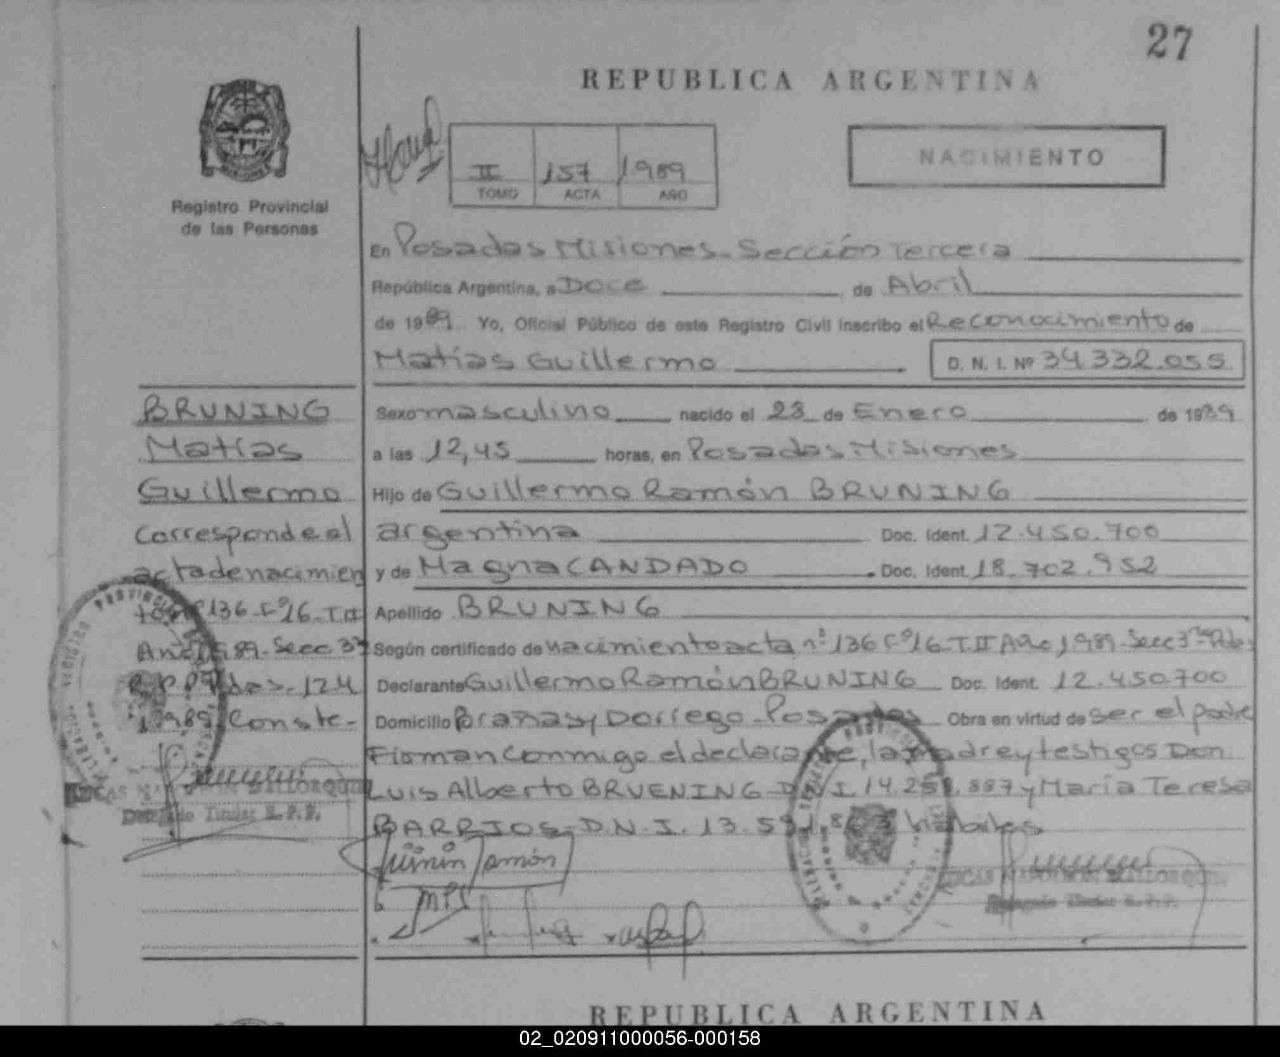 27
REPUBLICA ARGENTINA
Registro Provincial
de las Personas
II 157 1989
TOMO ACTA AÑO
NACIMIENTO
En Posadas Misiones - Sección Tercera
República Argentina, a Doce de Abril
de 1989 Yo, Oficial Público de este Registro Civil inscribo el Reconocimiento de
Matías Guillermo D. N. I. Nº 34.332.055
BRUNING
Matías
Guillermo
Corresponde al
acta de nacimien
to nº 136-Fº16-T.II
Año 1989-Secc 3ª
1989. Conste-
Sexo masculino nacido el 23 de Enero de 1989
a las 12,45 horas, en Posadas Misiones
Hijo de Guillermo Ramón BRUNING
argentina Doc. Ident. 12.450.700
y de Magna CANDADO Doc. Ident. 18.702.952
Apellido BRUNING
Según certificado de nacimiento acta nº 136 Fº16-T.II Año 1989-Secc 3ª Pdas
Declarante Guillermo Ramón BRUNING Doc. Ident. 12.450.700
Domicilio Brañas y Dorrego - Posadas Obra en virtud de ser el padre
Firman conmigo el declarante, la madre y testigos Don:
Luis Alberto BRUENING D.N.I. 14.25 .887 y María Teresa
BARRIOS-D.N.I. 13.5 hábiles
Delegado Titular R.P.P.
REPUBLICA ARGENTINA
02_020911000056-000158